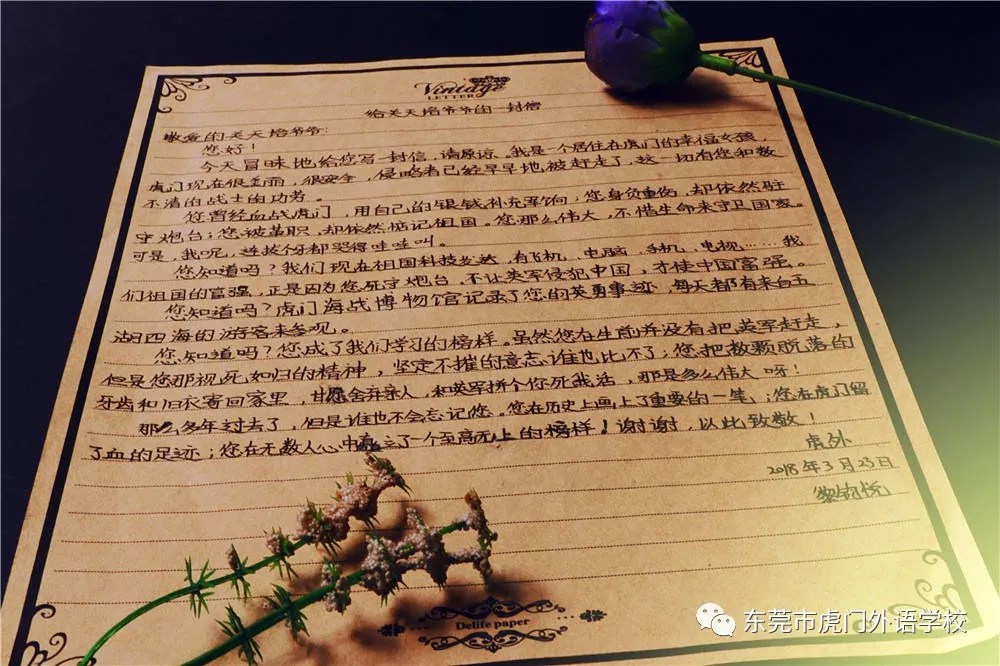 Vintage
LETTER
给关天培爷爷的一封信
敬爱的关天培爷爷:
您好!
今天冒昧地给您写一封信,请原谅。我是一个居住在虎门的幸福女孩,
虎门现在很美丽,很安全,侵略者已经早早地被赶走了,这一切有您和数
不清的战士的功劳。
您曾经血战虎门,用自己的银钱补充军饷;您身负重伤,却依然驻
守炮台;您被革职,却依然惦记祖国。您那么伟大,不惜生命来守卫国家。
可是,我呢,连拔个牙都哭得哇哇叫。
您知道吗?我们现在祖国科技发达,有飞机、电脑、手机、电视……我
们祖国的富强,正是因为您死守炮台,不让英军侵犯中国,才使中国富强。
您知道吗?虎门海战博物馆记录了您的英勇事迹,每天都有来自五
湖四海的游客来参观。
您知道吗?您成了我们学习的榜样。虽然您在生前并没有把英军赶走,
但是您那视死如归的精神,坚定不摧的意志谁也比不了;您把数颗脱落的
牙齿和旧衣寄回家里,甘愿舍弃亲人,和英军拼个你死我活,那是多么伟大呀!
那么多年过去了,但是谁也不会忘记您。您在历史上画上了重要的一笔;您在虎门留
了血的足迹;您在无数人心中立了一个至高无上的榜样!谢谢,以此致敬!
虎外
2018年3月23日
黎钧悦
Delife paper
东莞市虎门外语学校